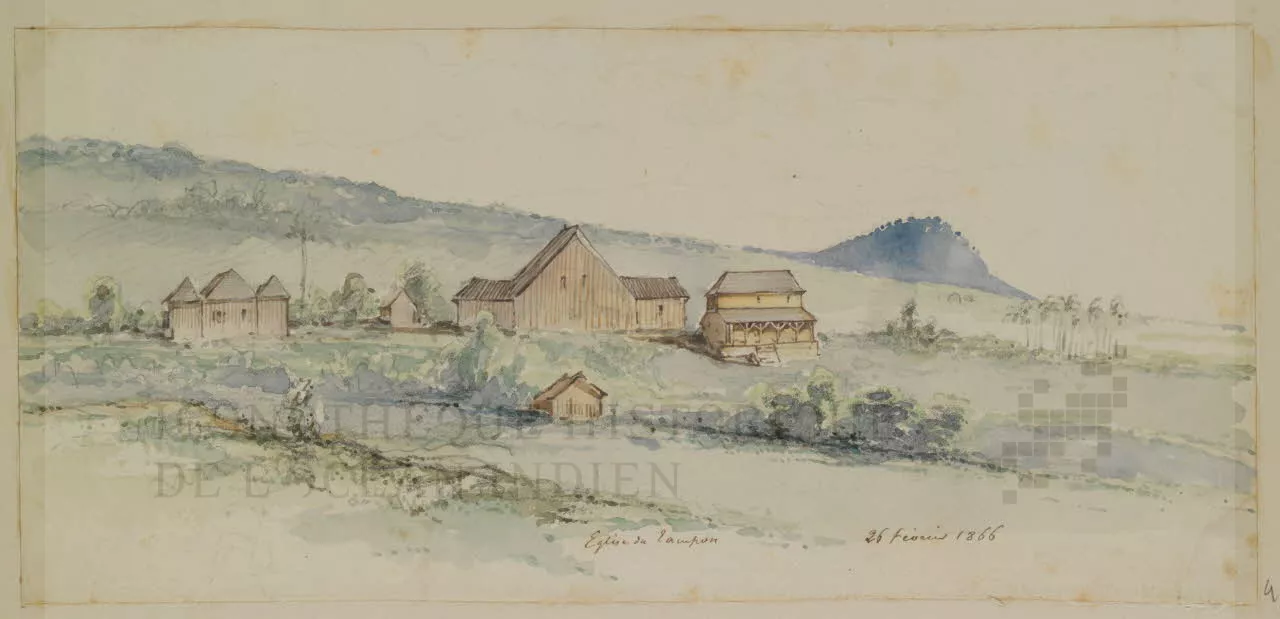 ICONOTHÈQUE HISTORIQUE
DE L'OCÉAN INDIEN
Eglise du Tampon 26 février 1866
4